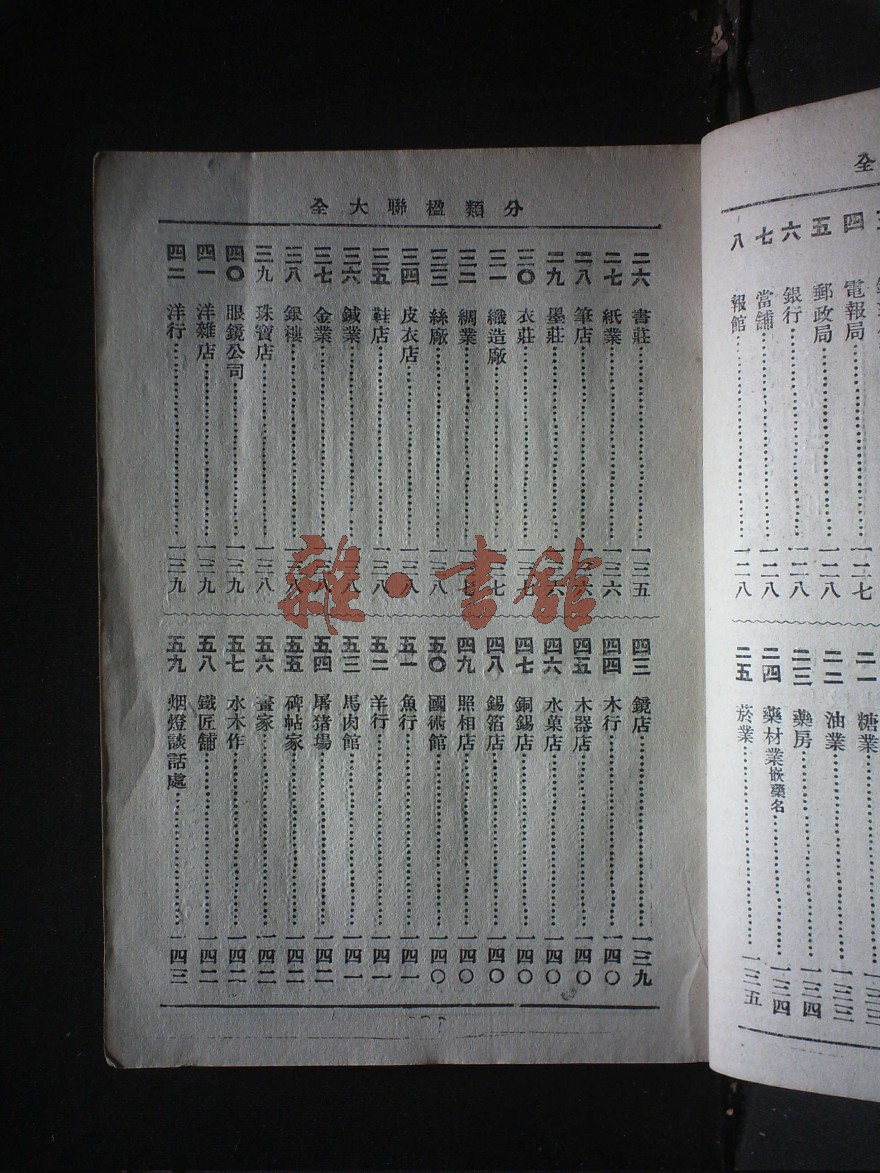 全
四 電報局 一二七
五 郵政局 一二八
六 銀行 一二八
七 當舖 一二八
八 報館 一二八
二一 糖業
二二 油業 一三三
二三 藥房 一三四
二四 藥材業嵌藥名 一三四
二五 菸業 一三五
分類楹聯大全
二六 書莊 一三五
二七 紙業 一三六
二八 筆店 一三六
二九 墨莊 一三六
三〇 衣莊 一三七
三一 織造廠 一三七
三二 綢業 一三七
三三 絲廠 一三八
三四 皮衣店 一三八
三五 鞋店 一三八
三六 鍼業 一三八
三七 金業 一三八
三八 銀樓 一三八
三九 珠寶店 一三八
四〇 眼鏡公司 一三九
四一 洋雜店 一三九
四二 洋行 一三九
四三 鏡店 一三九
四四 木行 一四〇
四五 木器店 一四〇
四六 水菓店 一四〇
四七 銅錫店 一四〇
四八 錫箔店 一四〇
四九 照相店 一四〇
五〇 國術館 一四〇
五一 魚行 一四一
五二 羊行 一四一
五三 馬肉館 一四一
五四 屠猪場 一四二
五五 碑帖家 一四二
五六 畫家 一四二
五七 水木作 一四二
五八 鐵匠舖 一四二
五九 烟燈談話處 一四三
雜·書館